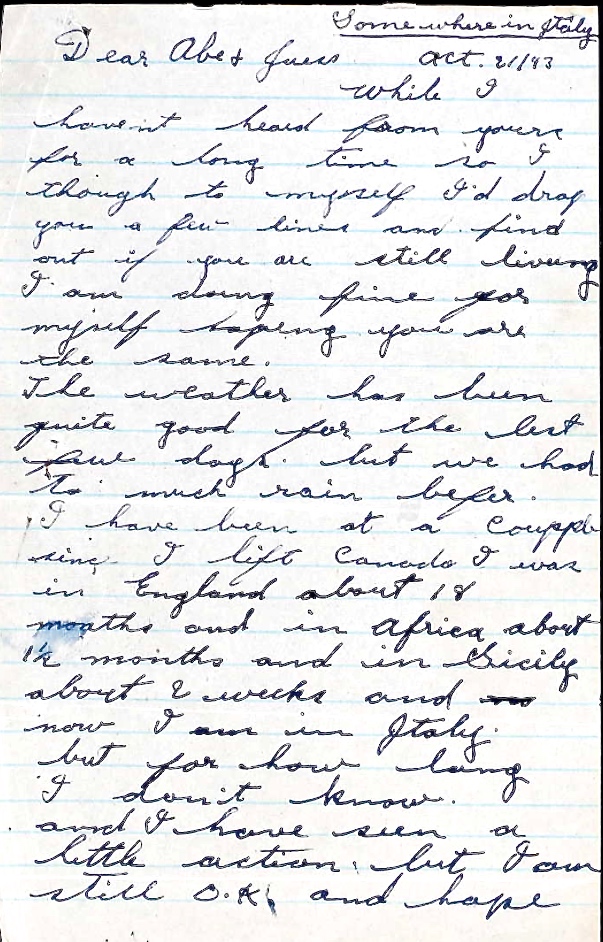 Somewhere in Italy
Dear Abe & Juess Oct. 21/43
While I
havent heard from yours
for a long time so I
though to myself I'd drop
you a few lines and find
out if you are still living
I am doing fine for
myself hopeng you are
the same.
The weather has been
quite good for the last
few days. but we had
to much rain befer.
I have been at a Coupple
sinc I lift Canada I was
in England about 18
months and in Africa about
1½ months and in Sicily
about 2 weeks and
now I am in Italy.
but for how long
I don't know.
and I have seen a
little action. but I am
still O.K. and hope